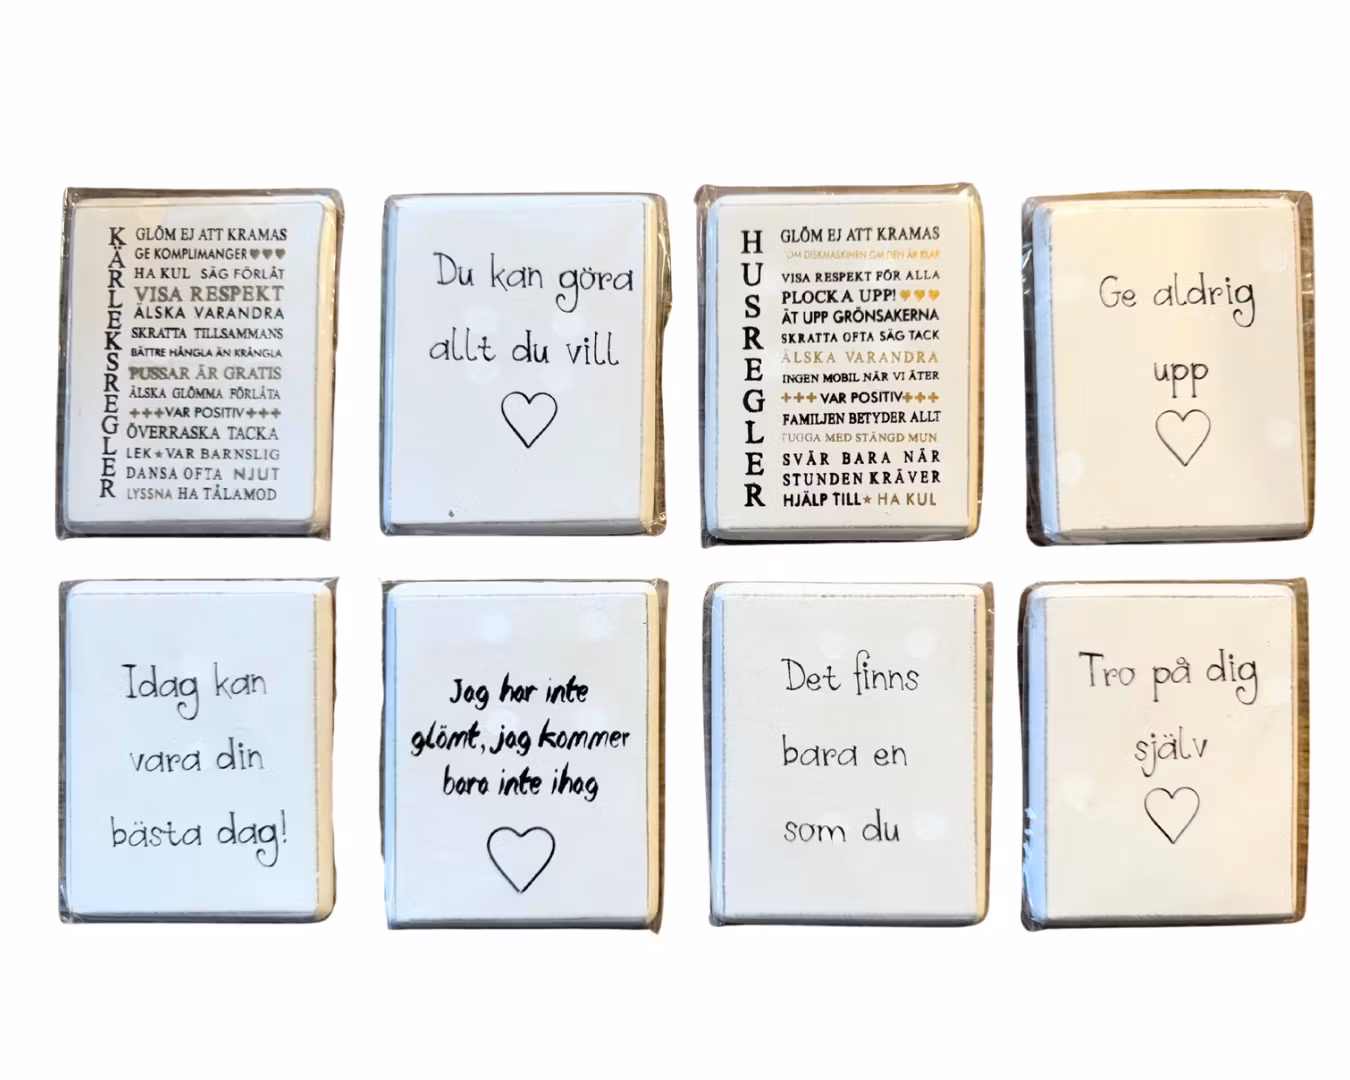 KÄRLEKSREGLER
GLÖM EJ ATT KRAMAS
GE KOMPLIMANGER♥♥♥
HA KUL SÄG FÖRLÅT
VISA RESPEKT
ÄLSKA VARANDRA
SKRATTA TILLSAMMANS
BÄTTRE HÅNGLA ÄN KRÅNGLA
PUSSAR ÄR GRATIS
ÄLSKA GLÖMMA FÖRLÅTA
+++VAR POSITIV+++
ÖVERRASKA TACKA
LEK★VAR BARNSLIG
DANSA OFTA NJUT
LYSSNA HA TÅLAMOD
Du kan göra
allt du vill
HUSREGLER
GLÖM EJ ATT KRAMAS
OM DISKMASKINEN OM DEN ÄR KLAR
VISA RESPEKT FÖR ALLA
PLOCKA UPP!♥♥♥
ÄT UPP GRÖNSAKERNA
SKRATTA OFTA SÄG TACK
ÄLSKA VARANDRA
INGEN MOBIL NÄR VI ÄTER
+++VAR POSITIV+++
FAMILJEN BETYDER ALLT
TUGGA MED STÄNGD MUN
SVÄR BARA NÄR
STUNDEN KRÄVER
HJÄLP TILL★HA KUL
Ge aldrig
upp
Idag kan
vara din
bästa dag!
Jag har inte
glömt, jag kommer
bara inte ihag
Det finns
bara en
som du
Tro på dig
själv